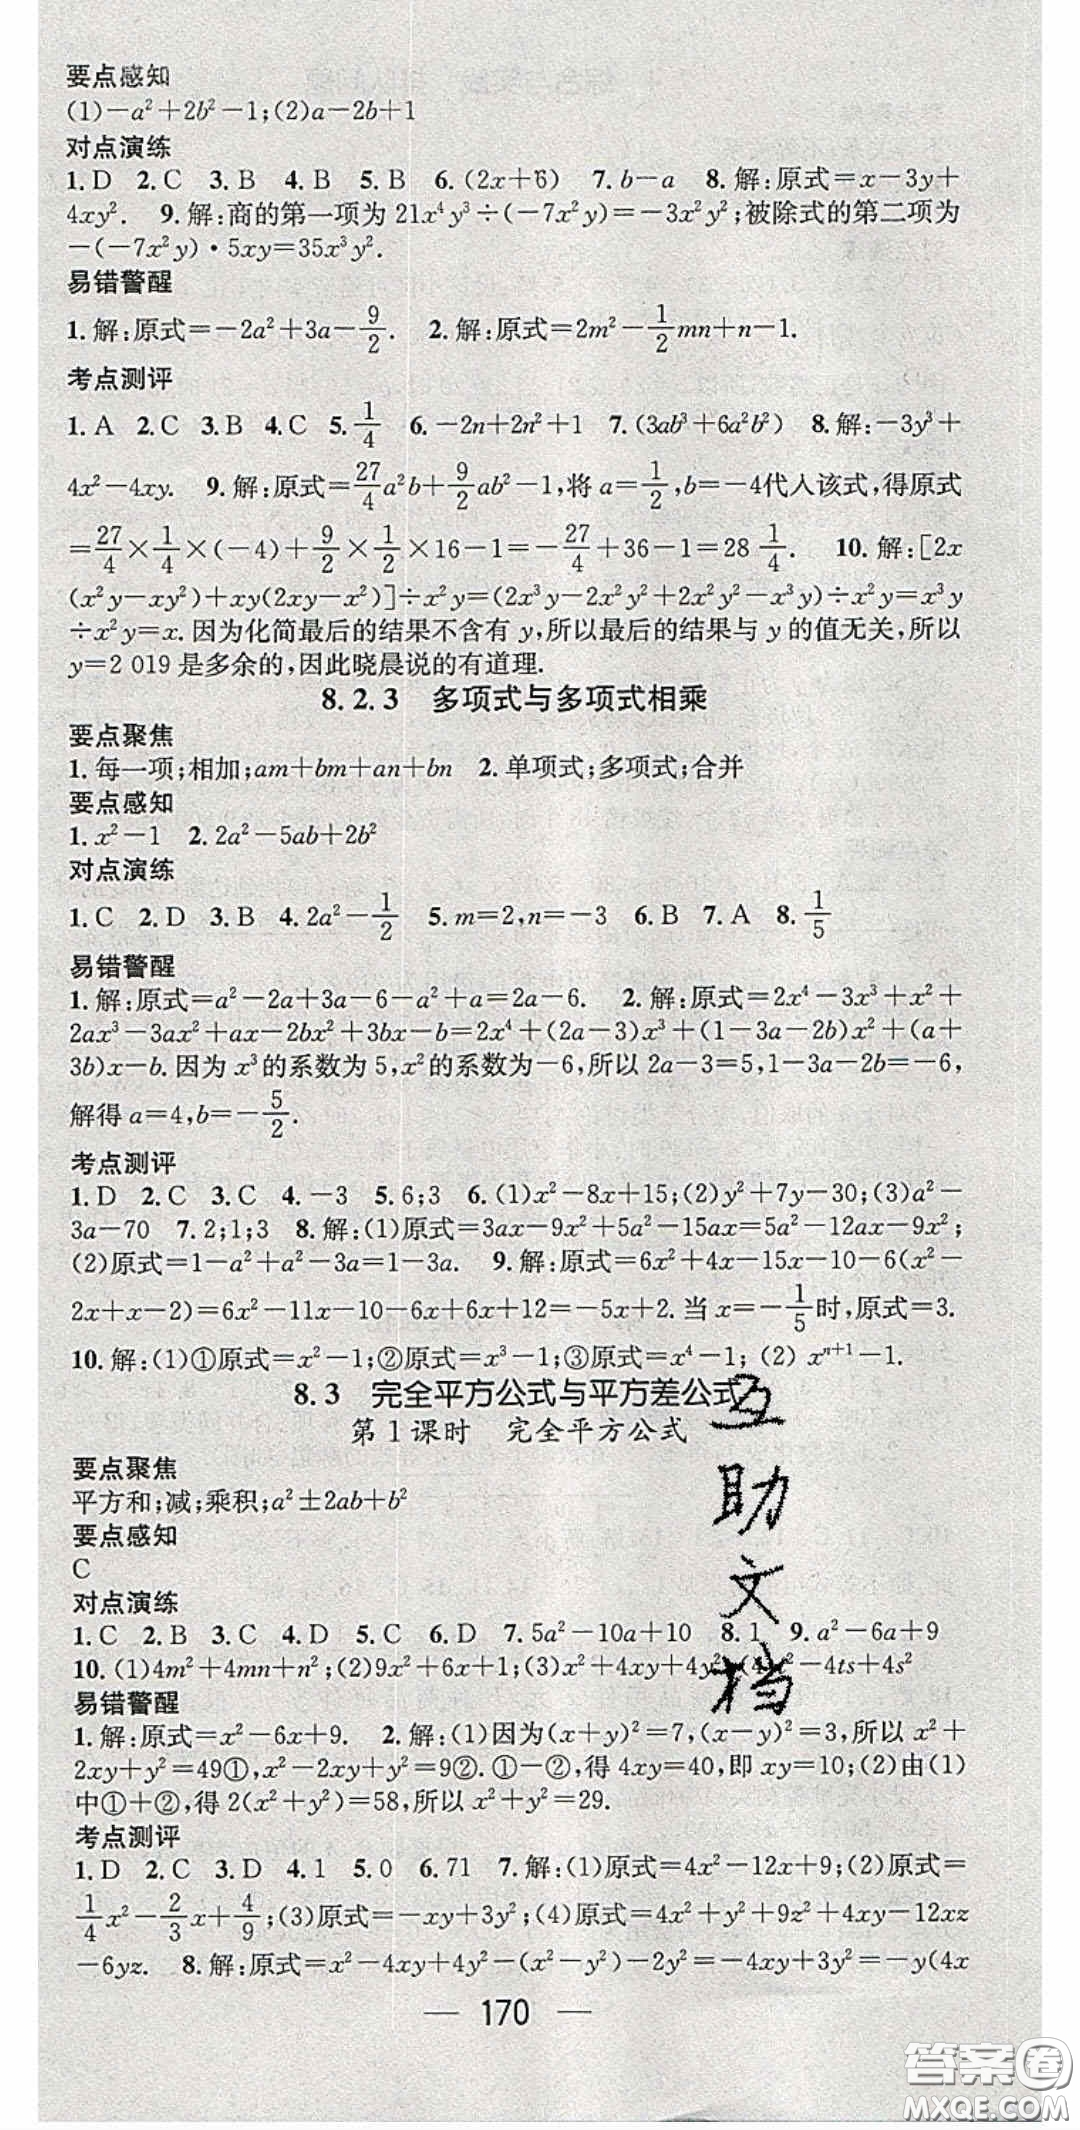 要点感知
(1)-a²+2b²-1;(2)a-2b+1
对点演练
1. D 2. C 3. B 4. B 5. B 6. (2x+6) 7. b-a 8. 解:原式=x-3y+
4xy². 9. 解:商的第一项为 21x⁴y³÷(-7x²y)=-3x²y²;被除式的第二项为
-(-7x²y)·5xy=35x³y².
易错警醒
1. 解:原式=-2a²+3a-9/2. 2. 解:原式=2m²-1/2mn+n-1.
考点测评
1. A 2. C 3. B 4. C 5. 1/4 6. -2n+2n²+1 7. (3ab³+6a²b²) 8. 解:-3y³+
4x²-4xy. 9. 解:原式=27/4a²b+9/2ab²-1,将 a=1/2,b=-4代入该式,得原式
=27/4×1/4×(-4)+9/2×1/2×16-1=-27/4+36-1=28 1/4. 10. 解:[2x
(x²y-xy²)+xy(2xy-x²)]÷x²y=(2x³y-2x²y²+2x²y²-x³y)÷x²y=x³y
÷x²y=x. 因为化简最后的结果不含有 y,所以最后的结果与 y 的值无关,所以
y=2 019 是多余的,因此晓晨说的有道理.
8.2.3 多项式与多项式相乘
要点聚焦
1. 每一项;相加;am+bm+an+bn 2. 单项式;多项式;合并
要点感知
1. x²-1 2. 2a²-5ab+2b²
对点演练
1. C 2. D 3. B 4. 2a²-1/2 5. m=2,n=-3 6. B 7. A 8. 1/5
易错警醒
1. 解:原式=a²-2a+3a-6-a²+a=2a-6. 2. 解:原式=2x⁴-3x³+x²+
2ax³-3ax²+ax-2bx²+3bx-b=2x⁴+(2a-3)x³+(1-3a-2b)x²+(a+
3b)x-b. 因为 x³的系数为 5,x²的系数为-6,所以 2a-3=5,1-3a-2b=-6,
解得 a=4,b=-5/2.
考点测评
1. D 2. C 3. C 4. -3 5. 6;3 6. (1)x²-8x+15;(2)y²+7y-30;(3)a²-
3a-70 7. 2;1;3 8. 解:(1)原式=3ax-9x²+5a²-15ax=5a²-12ax-9x²;
(2)原式=1-a²+a²-3a=1-3a. 9. 解:原式=6x²+4x-15x-10-6(x²-
2x+x-2)=6x²-11x-10-6x²+6x+12=-5x+2. 当 x=-1/5时,原式=3.
10. 解:(1)①原式=x²-1;②原式=x³-1;③原式=x⁴-1; (2) xⁿ⁺¹-1.
8.3 完全平方公式与平方差公式
第 1 课时 完全平方公式
要点聚焦
平方和;减;乘积;a²±2ab+b²
要点感知
C
对点演练
1. C 2. B 3. C 4. D 5. C 6. D 7. 5a²-10a+10 8. 1 9. a²-6a+9
10. (1)4m²+4mn+n²;(2)9x²+6x+1;(3)x²+4xy+4y² -4ts+4s²
易错警醒
1. 解:原式=x²-6x+9. 2. 解:(1)因为(x+y)²=7,(x-y)²=3,所以 x²+
2xy+y²=49①,x²-2xy+y²=9②. ①-②,得 4xy=40,即 xy=10;(2)由(1)
中①+②,得 2(x²+y²)=58,所以 x²+y²=29.
考点测评
1. D 2. C 3. D 4. 1 5. 0 6. 71 7. 解:(1)原式=4x²-12x+9;(2)原式=
1/4x²-2/3x+4/9;(3)原式=-xy+3y²;(4)原式=4x²+y²+9z²+4xy-12xz
-6yz. 8. 解:原式=x²-4xy+4y²-(x²-y²)-2y²=-4xy+3y²=-y(4x
— 170 —
互助文档
答案圈
MXQE.COM